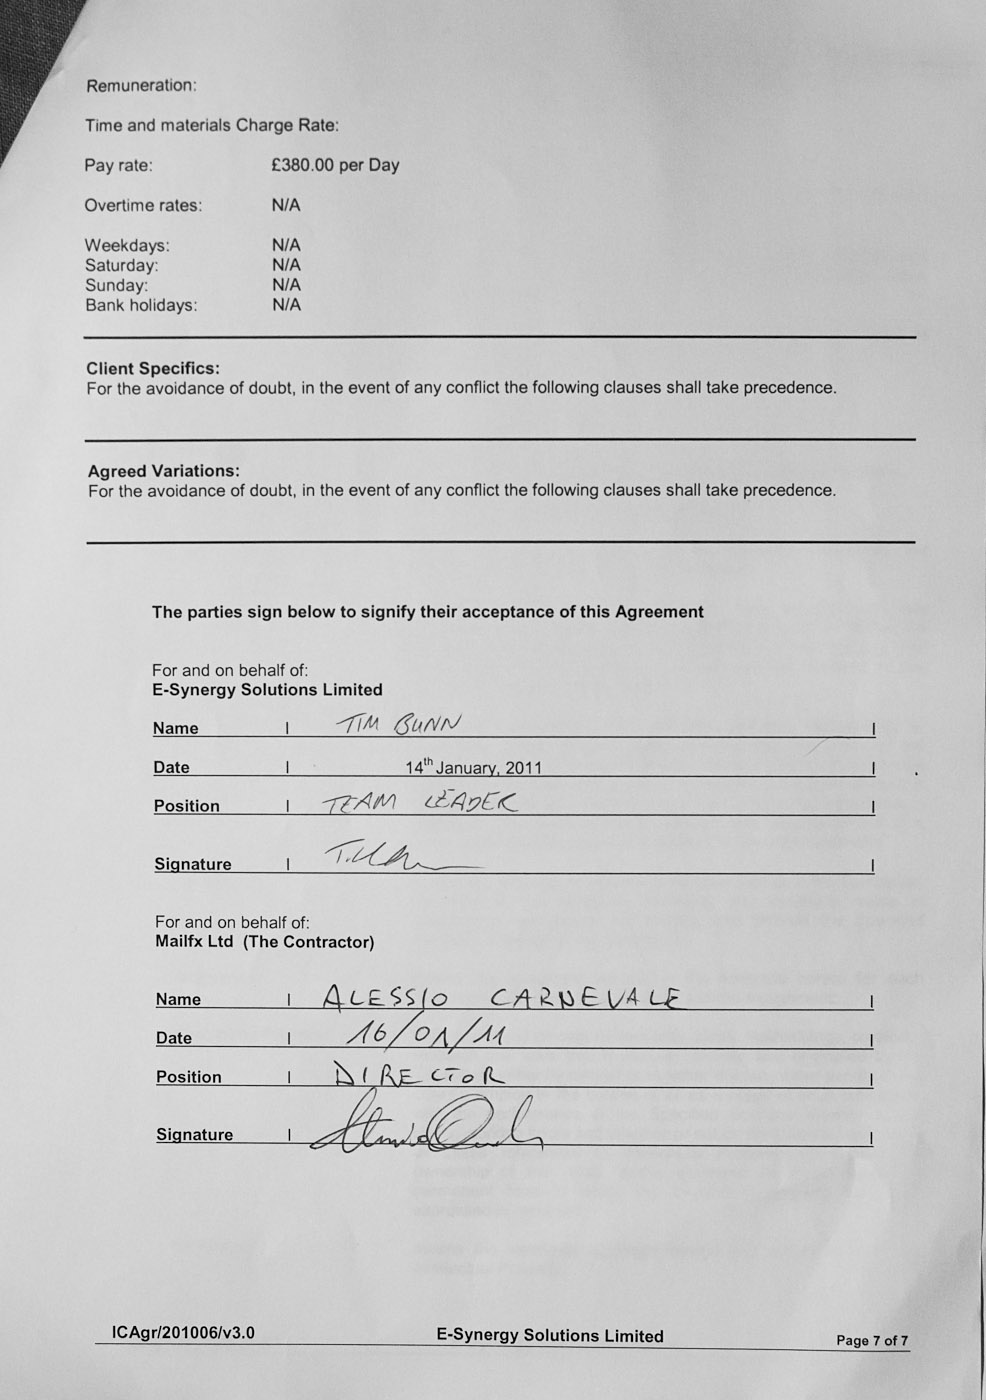 Remuneration:
Time and materials Charge Rate:
Pay rate: £380.00 per Day
Overtime rates: N/A
Weekdays: N/A
Saturday: N/A
Sunday: N/A
Bank holidays: N/A
Client Specifics:
For the avoidance of doubt, in the event of any conflict the following clauses shall take precedence.
Agreed Variations:
For the avoidance of doubt, in the event of any conflict the following clauses shall take precedence.
The parties sign below to signify their acceptance of this Agreement
For and on behalf of:
E-Synergy Solutions Limited
Name | TIM BUNN |
Date | 14th January, 2011 |
Position | TEAM LEADER |
Signature | |
For and on behalf of:
Mailfx Ltd (The Contractor)
Name | ALESSIO CARNEVALE |
Date | 16/01/11 |
Position | DIRECTOR |
Signature | |
ICAgr/201006/v3.0 E-Synergy Solutions Limited Page 7 of 7